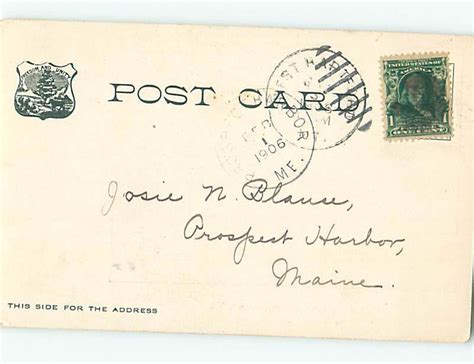 FREEDOM AND UNITY
POST CARD
UNITED STATES OF AMERICA
1
ONE CENT
HARBOR
FEB
1
1906
ME.
Josie N. Blanse,
Prospect Harbor,
Maine.
THIS SIDE FOR THE ADDRESS